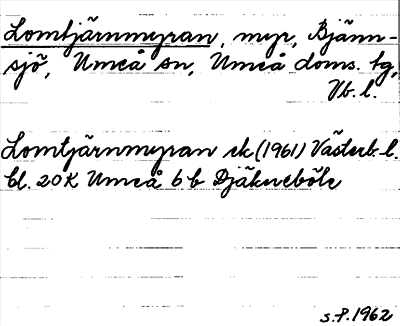 Lomtjärnmyran, myr, Bjänn-
sjö, Umeå sn, Umeå doms. tg,
Vb. l.
Lomtjärnmyran ek (1961) Västerb. l.
bl. 20K Umeå 6b Djäkneböle
s.P. 1962